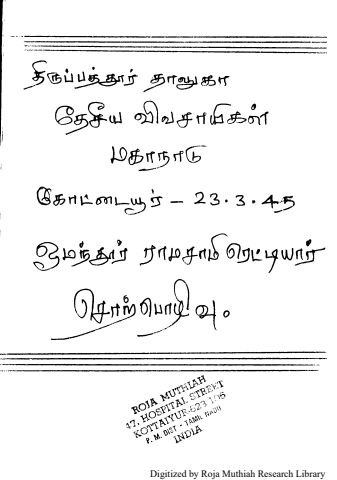 திருப்பத்தூர் தாலுகா
தேசீய விவசாயிகள்
மகாநாடு
கோட்டையூர் - 23.3.45
ஓமந்தூர் ராமசாமி ரெட்டியார்
சொற்பொழிவு.
ROJA MUTHIAH
47, HOSPITAL STREET
KOTTAIYUR-623 106
P. M. DIST - TAMIL NADU
INDIA
Digitized by Roja Muthiah Research Library